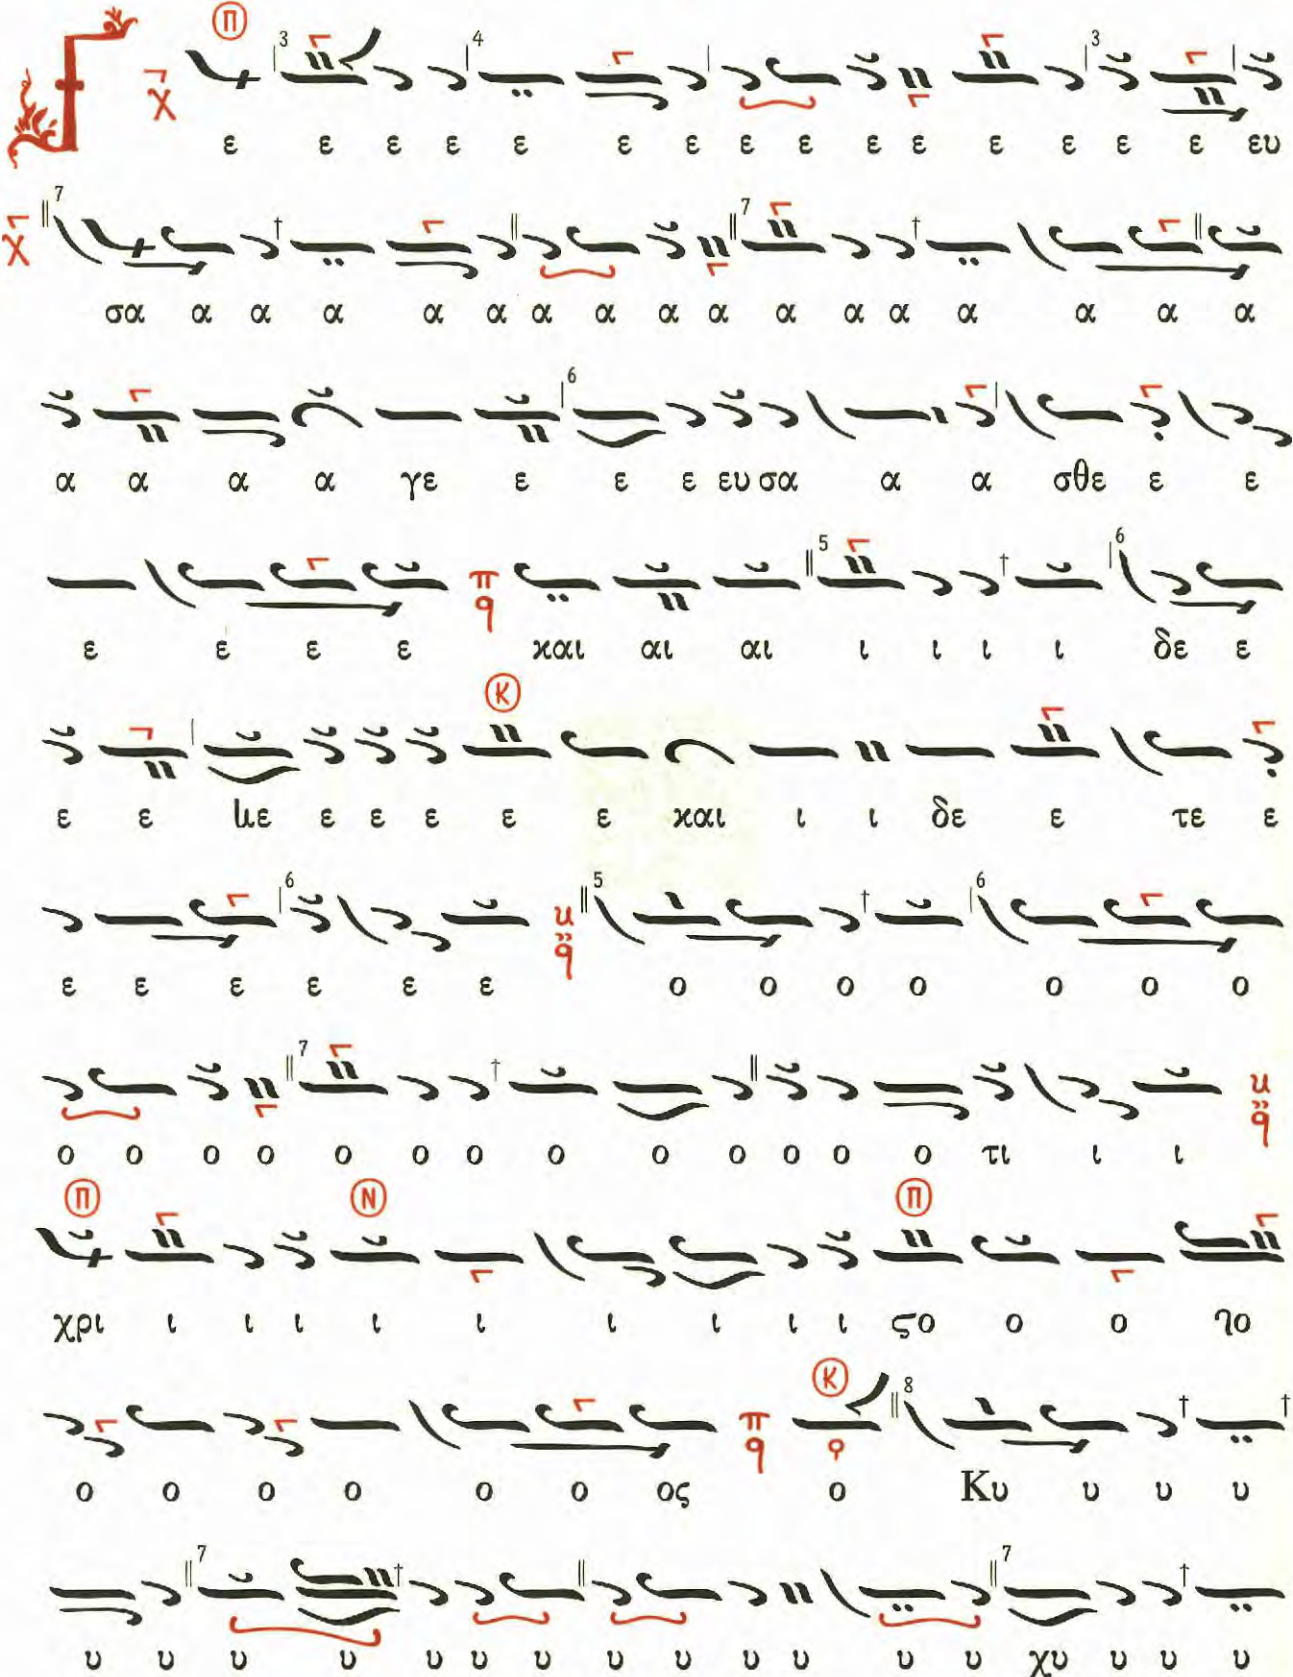 Π 3 4 3
Γ ε ε ε ε ε ε ε ε ε ε ε ε ε ε ε ευ
7 7
σα α α α α α α α α α α α α α α α α
6
α α α α γε ε ε ε ευ σα α α σθε ε ε
5 6
ε ε ε ε π q και αι αι ι ι ι ι δε ε
Κ
ε ε με ε ε ε ε ε και ι ι δε ε τε ε
6 5 6
ε ε ε ε ε ε ο ο ο ο ο ο ο
7
ο ο ο ο ο ο ο ο ο ο ο ο ο τι ι ι
Π Ν Π
χρι ι ι ι ι ι ι ι ι ι ϛο ο ο λο
Κ 8
ο ο ο ο ο ο ος π q ο Κυ υ υ υ
7 7
υ υ υ υ υ υ υ υ υ υ υ υ υ χυ υ υ υ